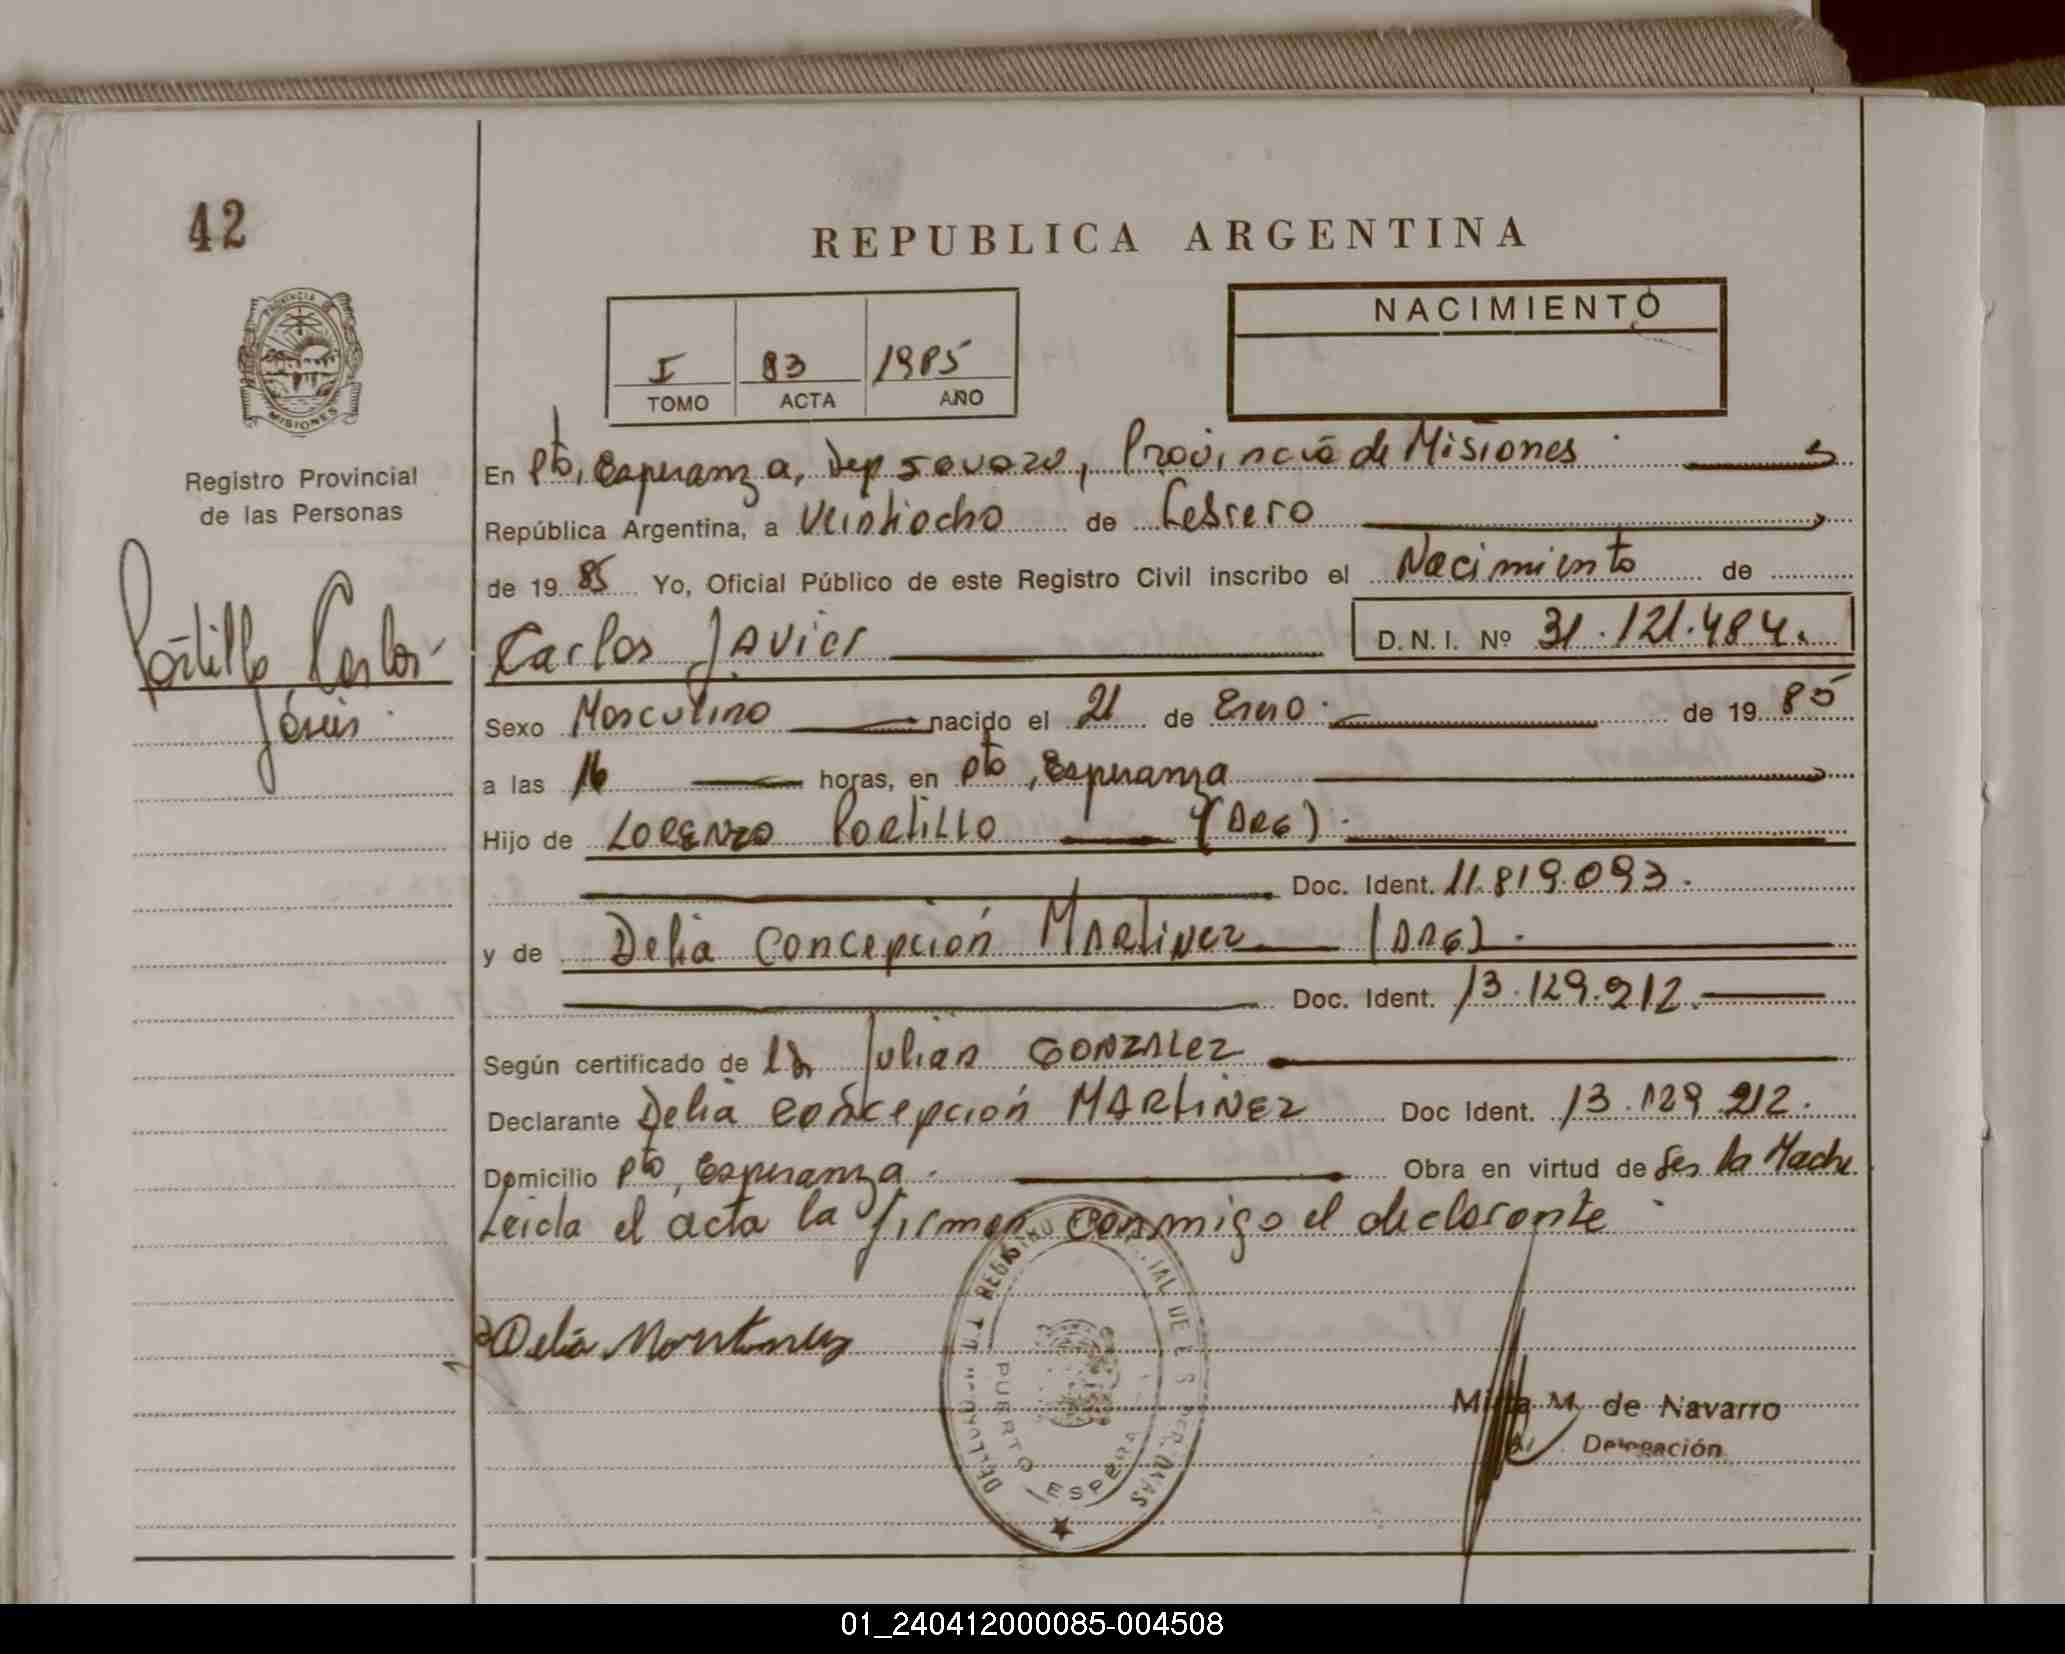 42
REPUBLICA ARGENTINA
PROVINCIA DE
MISIONES
Registro Provincial
de las Personas
I 83 1985
TOMO ACTA AÑO
NACIMIENTO
En Pto, Esperanza, Dep Provincia de Misiones
República Argentina, a Veintiocho de Febrero
de 19 85 Yo, Oficial Público de este Registro Civil inscribo el Nacimiento de
Portillo Carlos
Javier
Carlos Javier D.N.I. Nº 31.121.484.
Sexo Masculino nacido el 21 de Enero de 19 85
a las 16 horas, en Pto, Esperanza
Hijo de LORENZO PORTILLO (ARG)
Doc. Ident. 11.819.093.
y de Delia Concepción MARTINEZ (ARG)
Doc. Ident. 13.129.212.
Según certificado de Julian GONZALEZ
Declarante Delia Concepción MARTINEZ Doc Ident. 13.129.212.
Domicilio Pto, Esperanza. Obra en virtud de Ser la Madre
Leida el acta la firman conmigo el declarante
Delia Martinez
PUERTO ESPERANZA
M. de Navarro
Delegación
01_240412000085-004508